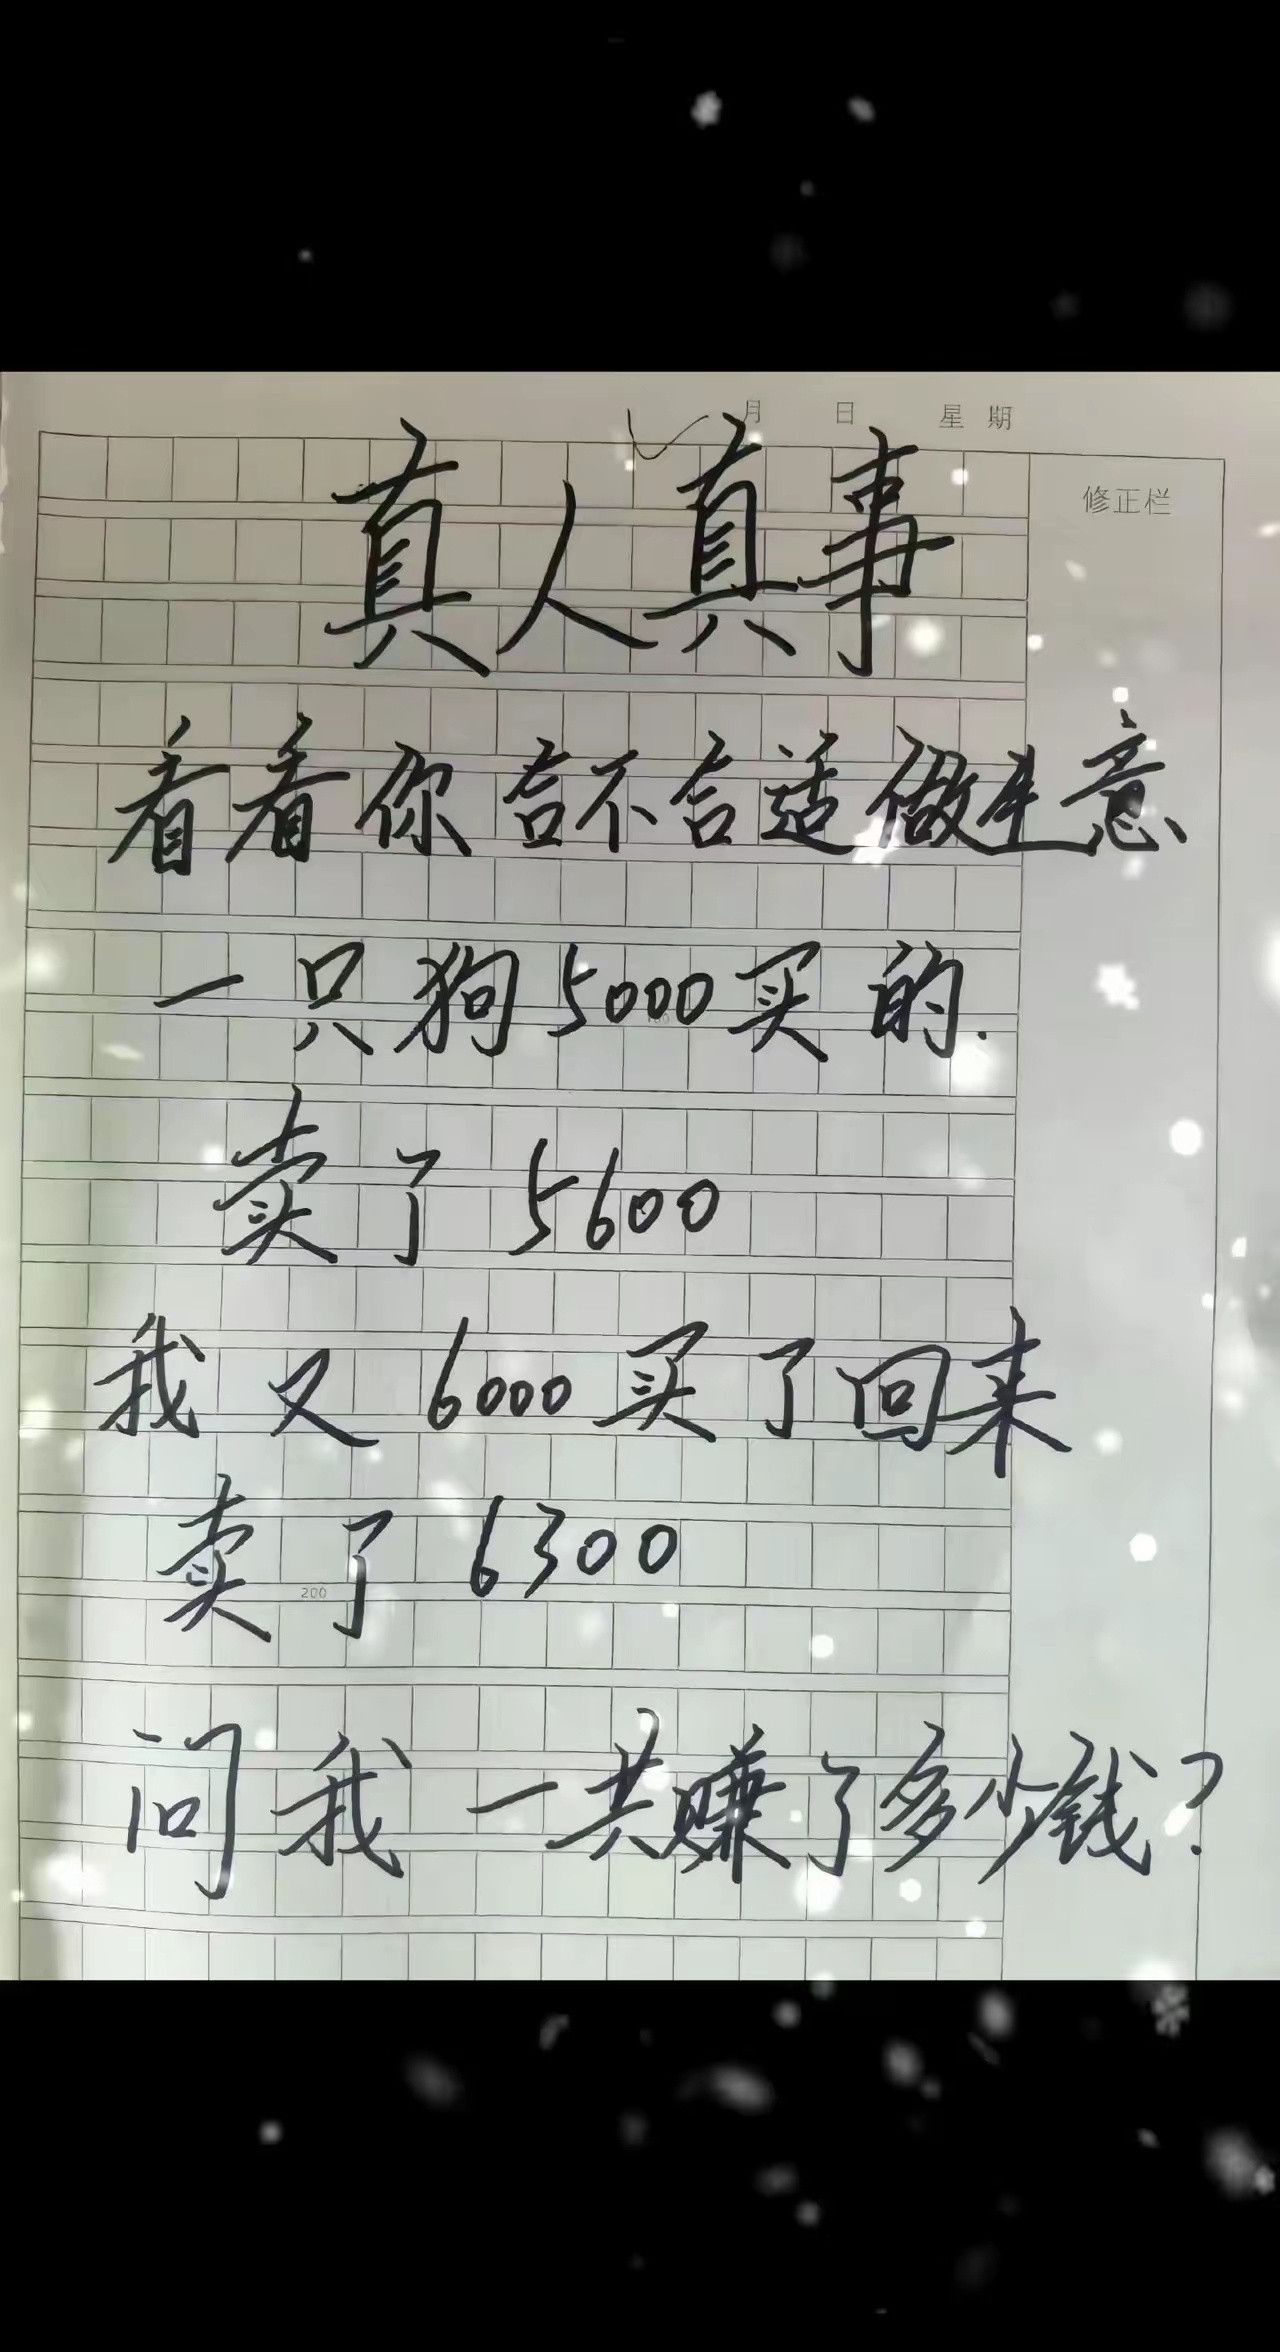 月 日 星期
修正栏
真人真事
看看你合不合适做生意
一只狗5000买的.
卖了5600
我又6000买了回来
卖了6300
200
问我一共赚了多少钱?